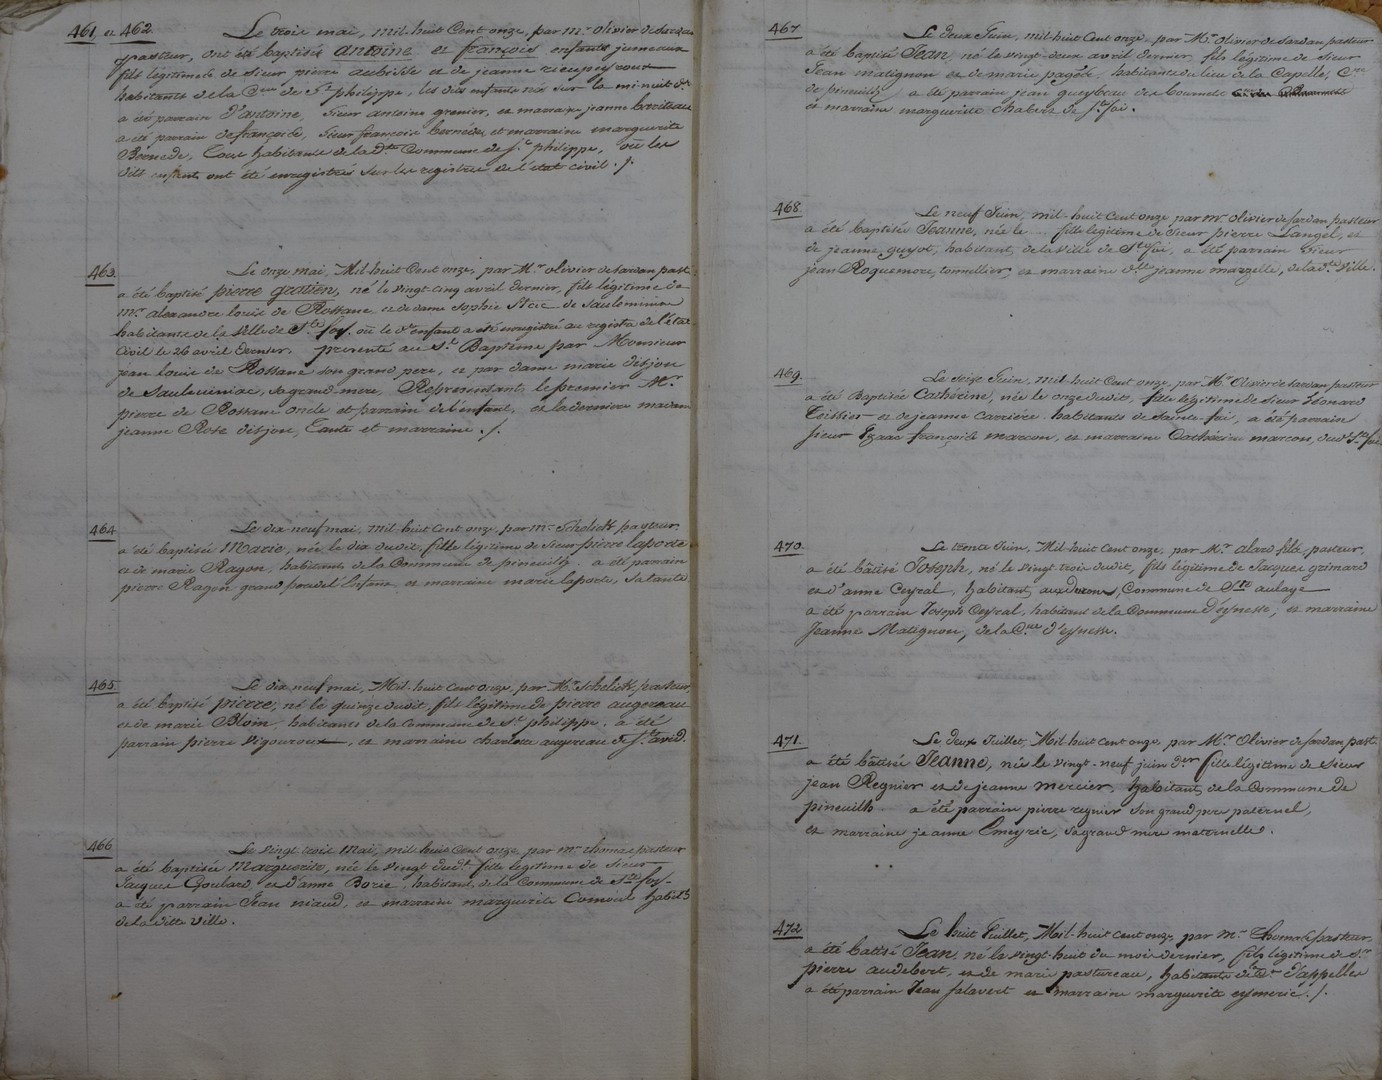 461 et 462. Le trois mai, mil huit Cent onze, par mr. olivier de Sardan
pasteur, ont été baptisés antoine et françois enfants jumeaux
fils légitimes de Sieur pierre et de jeanne
habitants de la Cne. de St. philippe, les dits enfants nés sur la minuit
a été parrain d'antoine, Sieur antoine grenier, et marraine jeanne
a été parrain de françois, Sieur françois bernède, et marraine marguerite
Bernede, Tous habitants de la dte. Commune de St. philippe, où les
dits enfants ont été enregistrés sur les registres de l'état civil ./.
463. Le onze mai, Mil huit Cent onze, par Mr. olivier de Sardan past.
a été baptisé pierre gratien, né le vingt cinq avril dernier, fils légitime de
mr. alexandre louis de Rossane et de dame Sophie de
habitants de la ville de Ste. foy. où le dt. enfant a été enregistré au registre de l'état
Civil le 26 avril dernier. présenté au St. Baptême par Monsieur
jean louis de Rossane son grand pere, et par dame marie désjon
de sa grand mere, Représentants le premier Mr.
pierre de Rossane oncle et parrain de l'enfant, et la derniere madame
jeanne Rose désjon, Tante et marraine ./.
464. Le dix neuf mai, mil huit Cent onze, par mr. Schélick pasteur,
a été baptisée Marie, née le dix dudit, fille légitime de Sieur pierre laporte
et de marie Ragon, habitants de la Commune de pineuilh. a été parrain
pierre Ragon grand pere de l'Enfant et marraine marie laporte, sa tante
465 Le dix neuf mai, Mil huit Cent onze, par Mr. Schélick, pasteur,
a été baptisé pierre, né le quinze dudit, fils légitime de pierre augereau
et de marie Bloin, habitants de la Commune de St. philippe. a été
parrain pierre vigouroux, et marraine charlotte augereau de St. avid.
466 Le vingt trois Mai, mil huit Cent onze, par mr. thomas pasteur
a été baptisée Marguerite, née le vingt dudt. fille légitime de Sieur
Jacques Goulard, et d'anne Borie, habitant, de la Commune de Ste. foy.
a été parrain Jean niaud, et marraine marguerite habits.
de la ditte ville.
467 Le deux Juin, mil huit Cent onze, par Mr. olivier de Sardan pasteur
a été baptisé Jean, né le vingt deux avril dernier, fils légitime de Sieur
Jean matignon et de marie pagès, habitants du lieu de la Capelle, Cne.
de pineuilh, a été parrain jean queyreau des bournets
et marraine marguerite Chabert de Ste. foi.
468. Le neuf Juin, mil-huit Cent onze, par mr. olivier de Sardan pasteur
a été baptisée Jeanne, née le ... fille légitime de Sieur pierre Langel, et
de jeanne guyot, habitant, de la ville de Ste. foi, a été parrain Sieur
jean Roquemore, tonnellier, et marraine dlle. jeanne marzelle, de la dte. ville.
469. Le seize Juin, mil huit Cent onze, par Mr. Olivier de Sardan pasteur
a été Baptisée Catherine, née le onze dudit, fille légitime de Sieur léonard
Teissier et de jeanne carrière habitants de Sainte foi, a été parrain
Sieur Izaac françois marcon, et marraine Cathérine marcon, dud. Ste. foi
470. Le trente Juin, Mil huit Cent onze, par Mr. alard fils pasteur,
a été bâtisé Joseph, né le vingt trois dudit, fils légitime de Jacques grimard
et d'anne Ceyral, habitant, aux Commune de Ste. aulaye
a été parrain Joseph Ceyral, habitant de la Commune d'éynesse, et marraine
Jeanne Matignon, de la Cne. d'eynesse.
471. Le deux Juillet, Mil huit Cent onze, par Mr. Olivier de Sardan past.
a été bâtisée Jeanne, née le vingt-neuf juin der. fille légitime de Sieur
jean Regnier et de jeanne mercier, habitants de la Commune de
pineuilh. a été parrain pierre regnier son grand pere paternel,
et marraine jeanne Emeyric, sa grand mere maternelle.
472 Le huit Juillet, Mil-huit cent onze, par mr. thomas pasteur,
a été batisé Jean, né le vingt-huit du mois dernier, fils légitime de Sr.
pierre audebert, et de marie pastureau, habitants de la Cne. d'appelles
a été parrain Jean falavert et marraine marguerite eymeric ./.